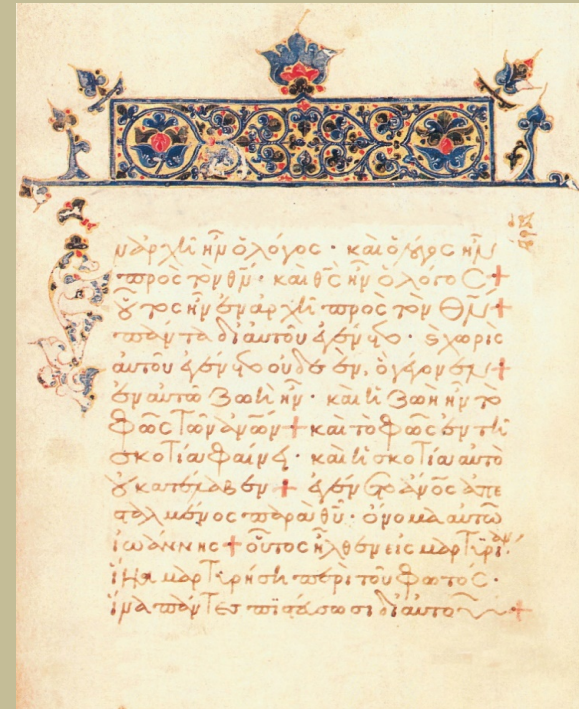 ν ἀρχῆ ἦν ὁ λόγος · καὶ ὁ λόγος ἦν
πρὸς τὸν θν · καὶ θς ἦν ὁ λόγος +
οὗτος ἦν ἐν ἀρχῆ πρὸς τὸν Θν +
πάντα δι αὐτοῦ ἐγένετο · χωρὶς
αὐτοῦ ἐγένετο οὐδὲ ἕν, ὃ γέγονεν +
ἐν αὐτῶ ζωὴ ἦν · καὶ ἡ ζωὴ ἦν τὸ
φῶς τῶν ἀνων + καὶ τὸ φῶς ἐν τῆ
σκοτία φαίνει · καὶ ἡ σκοτία αὐτὸ
οὐ κατέλαβεν + ἐγένετο ἀνος ἀπε
σταλμένος παρὰ θυ · ὄνομα αὐτῶ
ἰωάννης + οὗτος ἦλθεν εἰς μαρτυρίαν ·
ἵνα μαρτυρήση περὶ τοῦ φωτός ·
ἵνα πάντες πιστεύσωσι δι αὐτοῦ +